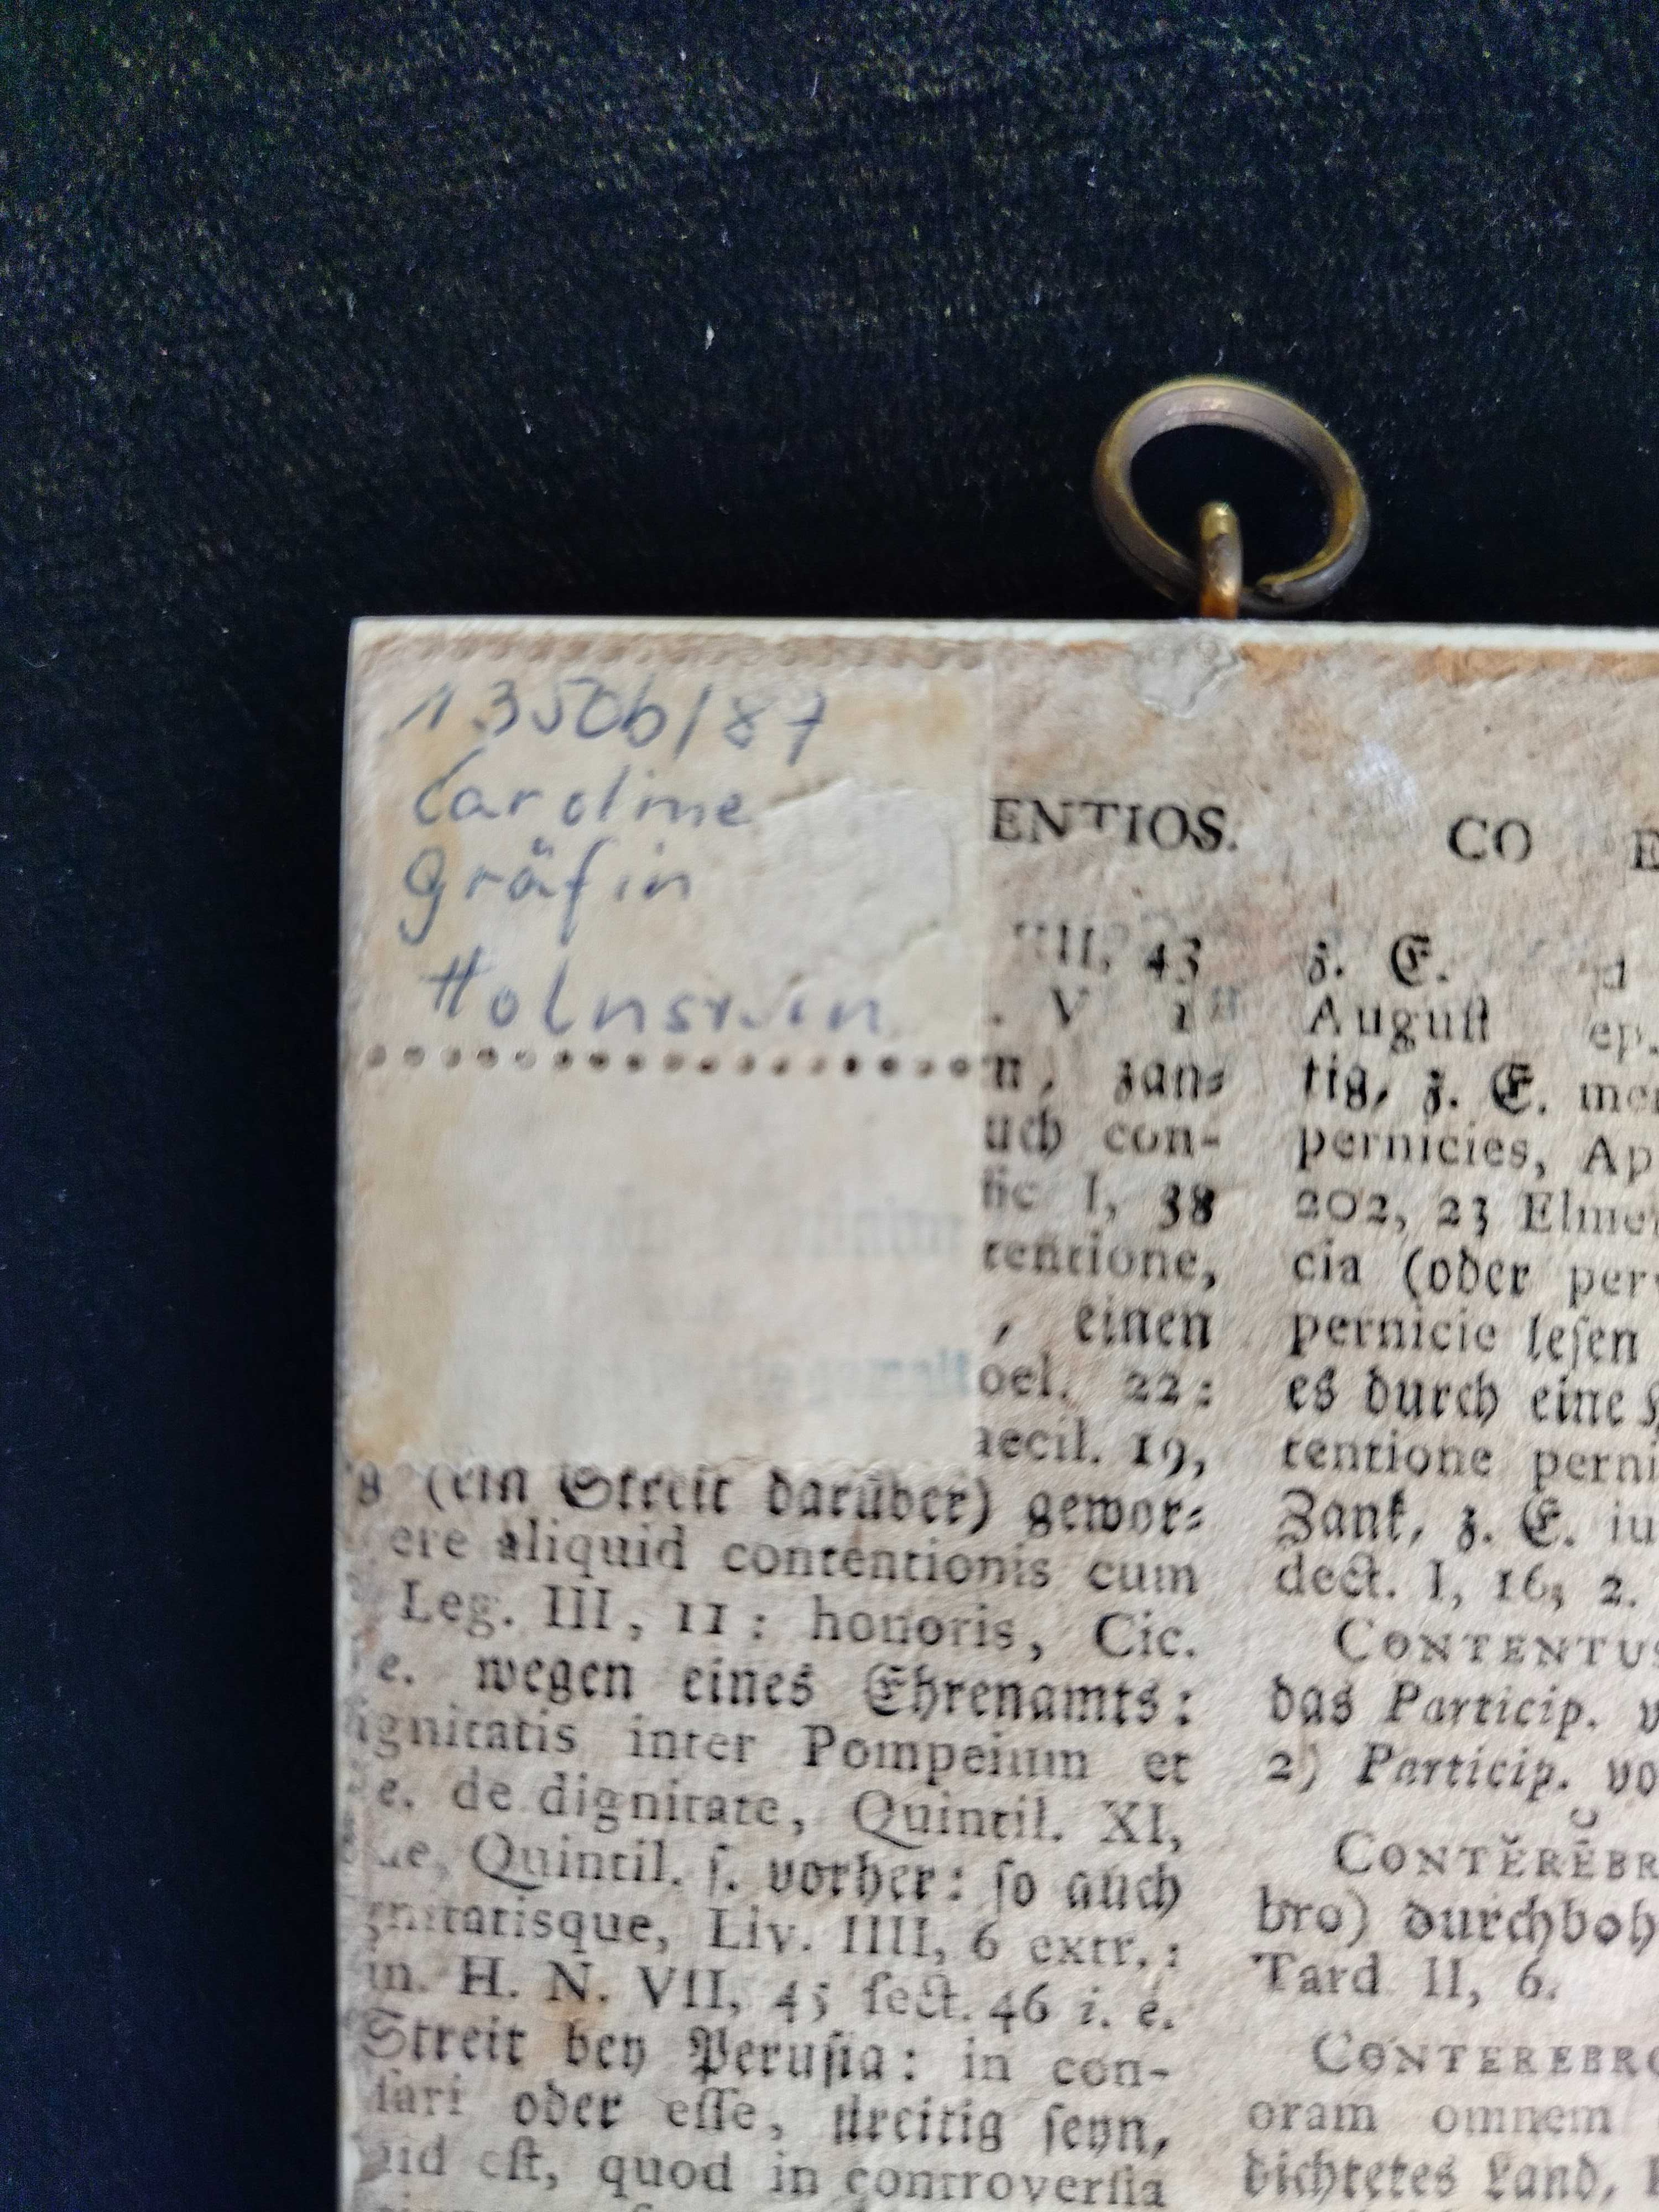 13506/87
Caroline
gräfin
Holnstein
ENTIOS.
III, 43
. V
n, zan⸗
uch con-
fic I, 38
tentione,
, einen
oel. 22:
aecil. 19,
g (ein Streit darüber) gewor⸗
ere aliquid contentionis cum
Leg. III, 11: honoris, Cic.
e. wegen eines Ehrenamts:
ignitatis inter Pompeium et
e. de dignitate, Quintil. XI,
ue, Quintil. ſ. vorher: ſo auch
gnitatisque, Liv. IIII, 6 extr.:
in. H. N. VII, 45 ſect. 46 i. e.
Streit bey Peruſia: in con-
ſari oder eſſe, ſtreitig ſeyn,
uid eſt, quod in controverſia
CO E
z. E.
Auguſt ep.
tig, z. E. me
pernicies, Ap
202, 23 Elme
cia (oder per
pernicie leſen
es durch eine
tentione perni
Zank, z. E. iu
dect. I, 16, 2.
CONTENTUS
das Particip. v
2) Particip. vo
CONTĔRĔBR
bro) durchboh
Tard II, 6.
CONTEREBRO
oram omnem
dichtetes Land,